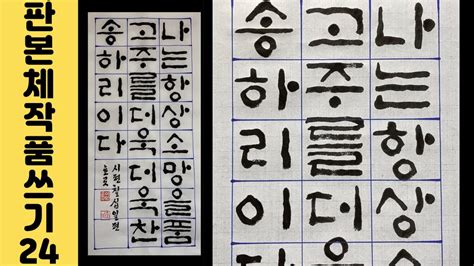 판본체작품쓰기24
나는항상소망을품
고주를더욱더욱찬
송하리이다
시편칠십일편
나는항상
고주를더
송하리이다